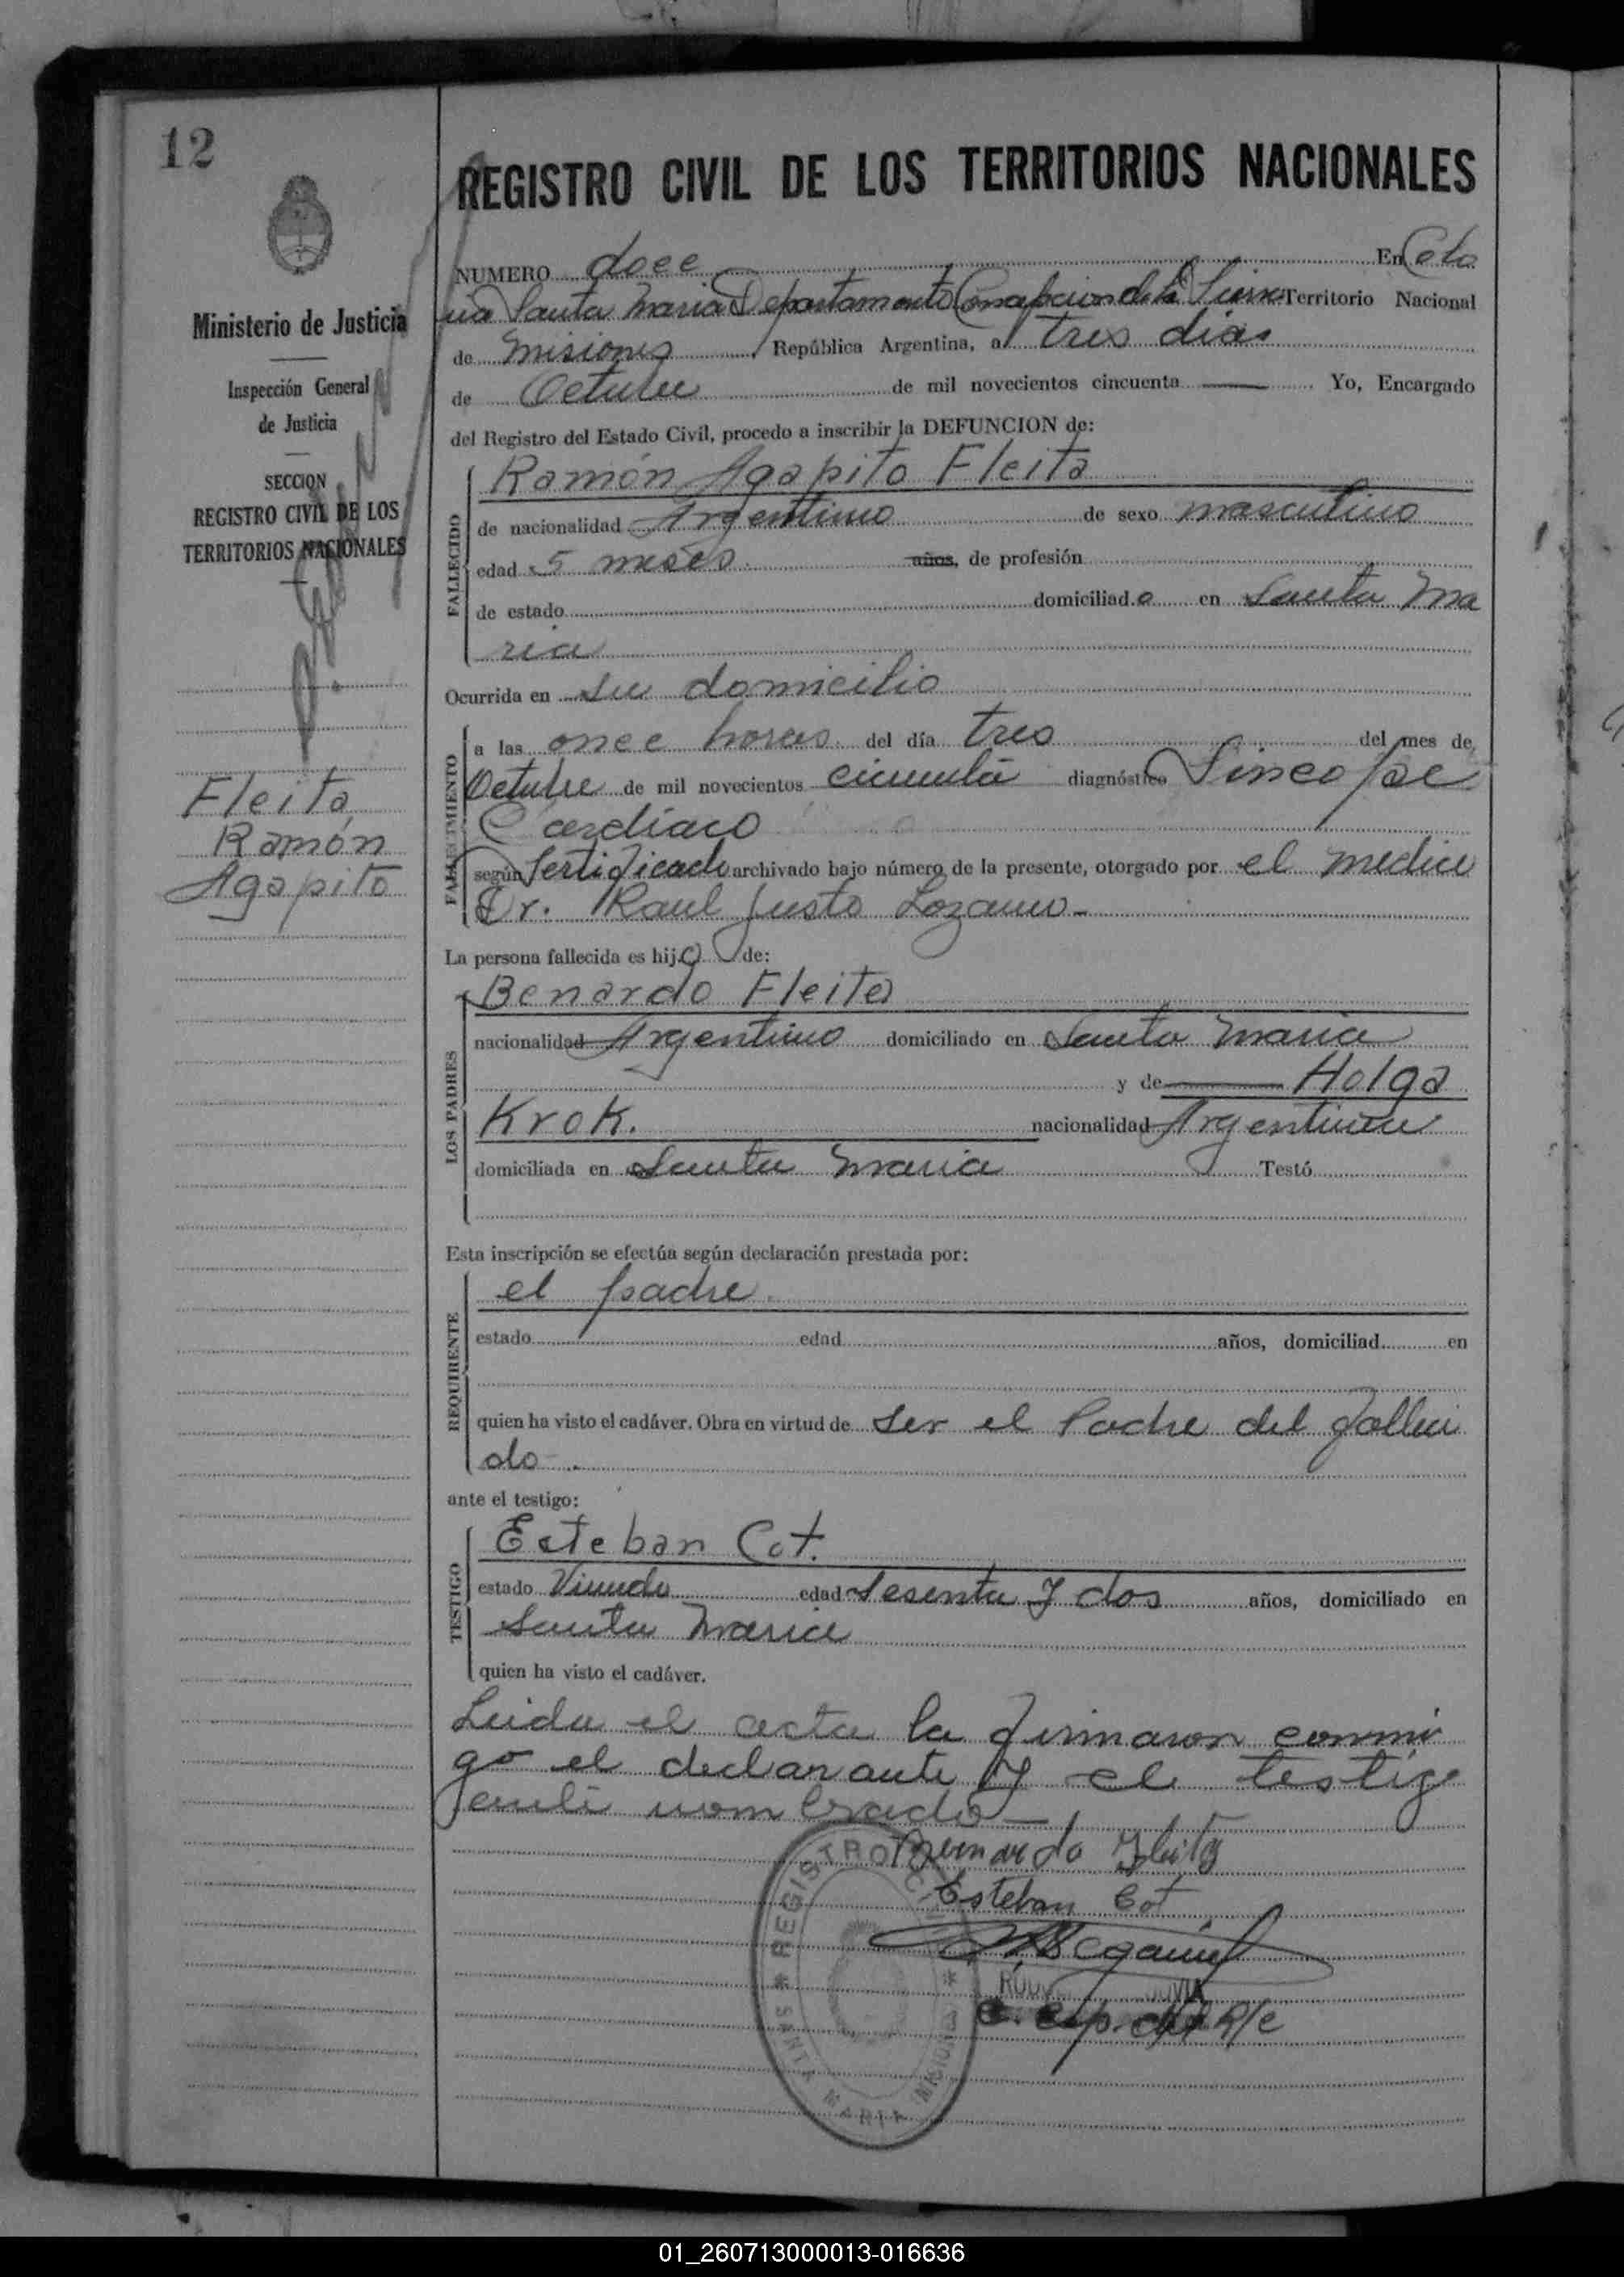 12
Ministerio de Justicia
Inspección General
de Justicia
SECCION
REGISTRO CIVIL DE LOS
TERRITORIOS NACIONALES
Fleita
Ramón
Agapito
REGISTRO CIVIL DE LOS TERRITORIOS NACIONALES
NUMERO doce En Colo
nia Santa Maria Departamento Concepcion de la Sierra Territorio Nacional
de Misiones República Argentina, a tres dias
de Octubre de mil novecientos cincuenta Yo, Encargado
del Registro del Estado Civil, procedo a inscribir la DEFUNCION de:
FALLECIDO
Ramón Agapito Fleita
de nacionalidad Argentino de sexo masculino
edad 5 meses años, de profesión
de estado domiciliado en Santa Ma
ria
Ocurrida en su domicilio
FALLECIMIENTO
a las once horas del día tres del mes de
Octubre de mil novecientos cincuenta diagnóstico Sincope
Cardiaco
según Sertificado archivado bajo número de la presente, otorgado por el medico
Dr. Raul Justo Lozano
La persona fallecida es hijo de:
LOS PADRES
Benardo Fleita
nacionalidad Argentino domiciliado en Santa Maria
y de Holga
Krok. nacionalidad Argentina
domiciliada en Santa Maria Testó
Esta inscripción se efectúa según declaración prestada por:
REQUIRENTE
el padre.
estado edad años, domiciliad en
quien ha visto el cadáver. Obra en virtud de ser el Padre del falleci
do
ante el testigo:
TESTIGO
Esteban Cot.
estado Viuudo edad Sesenta y dos años, domiciliado en
Santa Maria
quien ha visto el cadáver.
Leida el acta la firmaron conmi
go el declarante y el testigo
nombrado
Bernardo Fleita
Esteban Cot
REGISTRO CIVIL
SANTA MARIA MISIONES